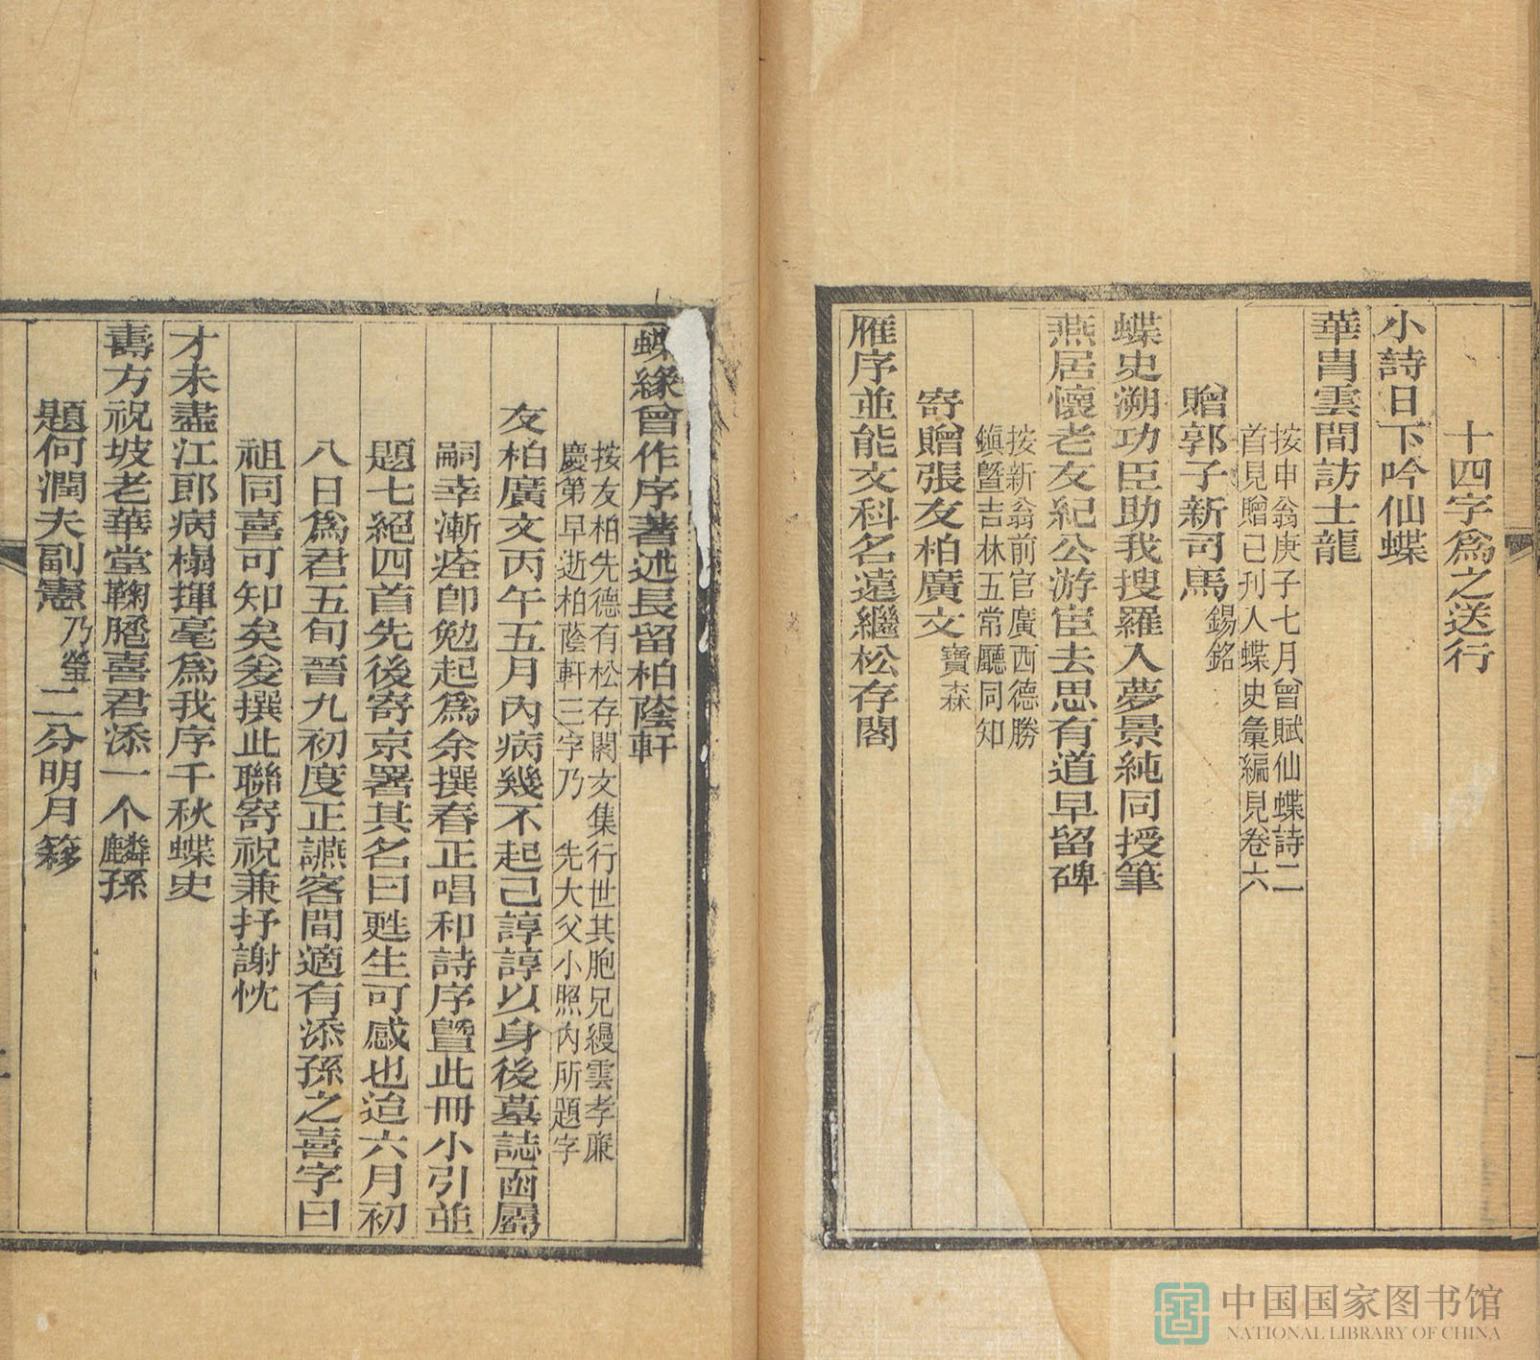 十四字爲之送行
小詩日下吟仙蝶
華胄雲間訪士龍
按申翁庚子七月曾賦仙蝶詩二
首見贈已刊入蝶史彙編見卷六
贈郭子新司馬錫銘
蝶史溯功臣助我搜羅入夢景純同授筆
燕居懷老友紀公游宦去思有道早留碑
按新翁前官廣西德勝
鎮曁吉林五常廳同知
寄贈張友柏廣文寶森
雁序並能文科名遠繼松存閣
蝶緣曾作序著述長留柏蔭軒
按友柏先德有松存閣文集行世其胞兄縵雲孝廉
慶第早逝柏蔭軒三字乃 先大父小照內所題字
友柏廣文丙午五月內病幾不起己諄諄以身後墓誌函屬
嗣幸漸痊卽勉起爲余撰春正唱和詩序曁此冊小引並
題七絕四首先後寄京署其名曰甦生可感也迨六月初
八日爲君五旬晉九初度正讌客間適有添孫之喜字曰
祖同喜可知矣爰撰此聯寄祝兼抒謝忱
才未盡江郎病榻揮毫爲我序千秋蝶史
壽方祝坡老華堂鞠𦜕喜君添一个麟孫
題何潤夫副憲乃瑩二分明月簃
二
中国国家图书馆
NATIONAL LIBRARY OF CHINA